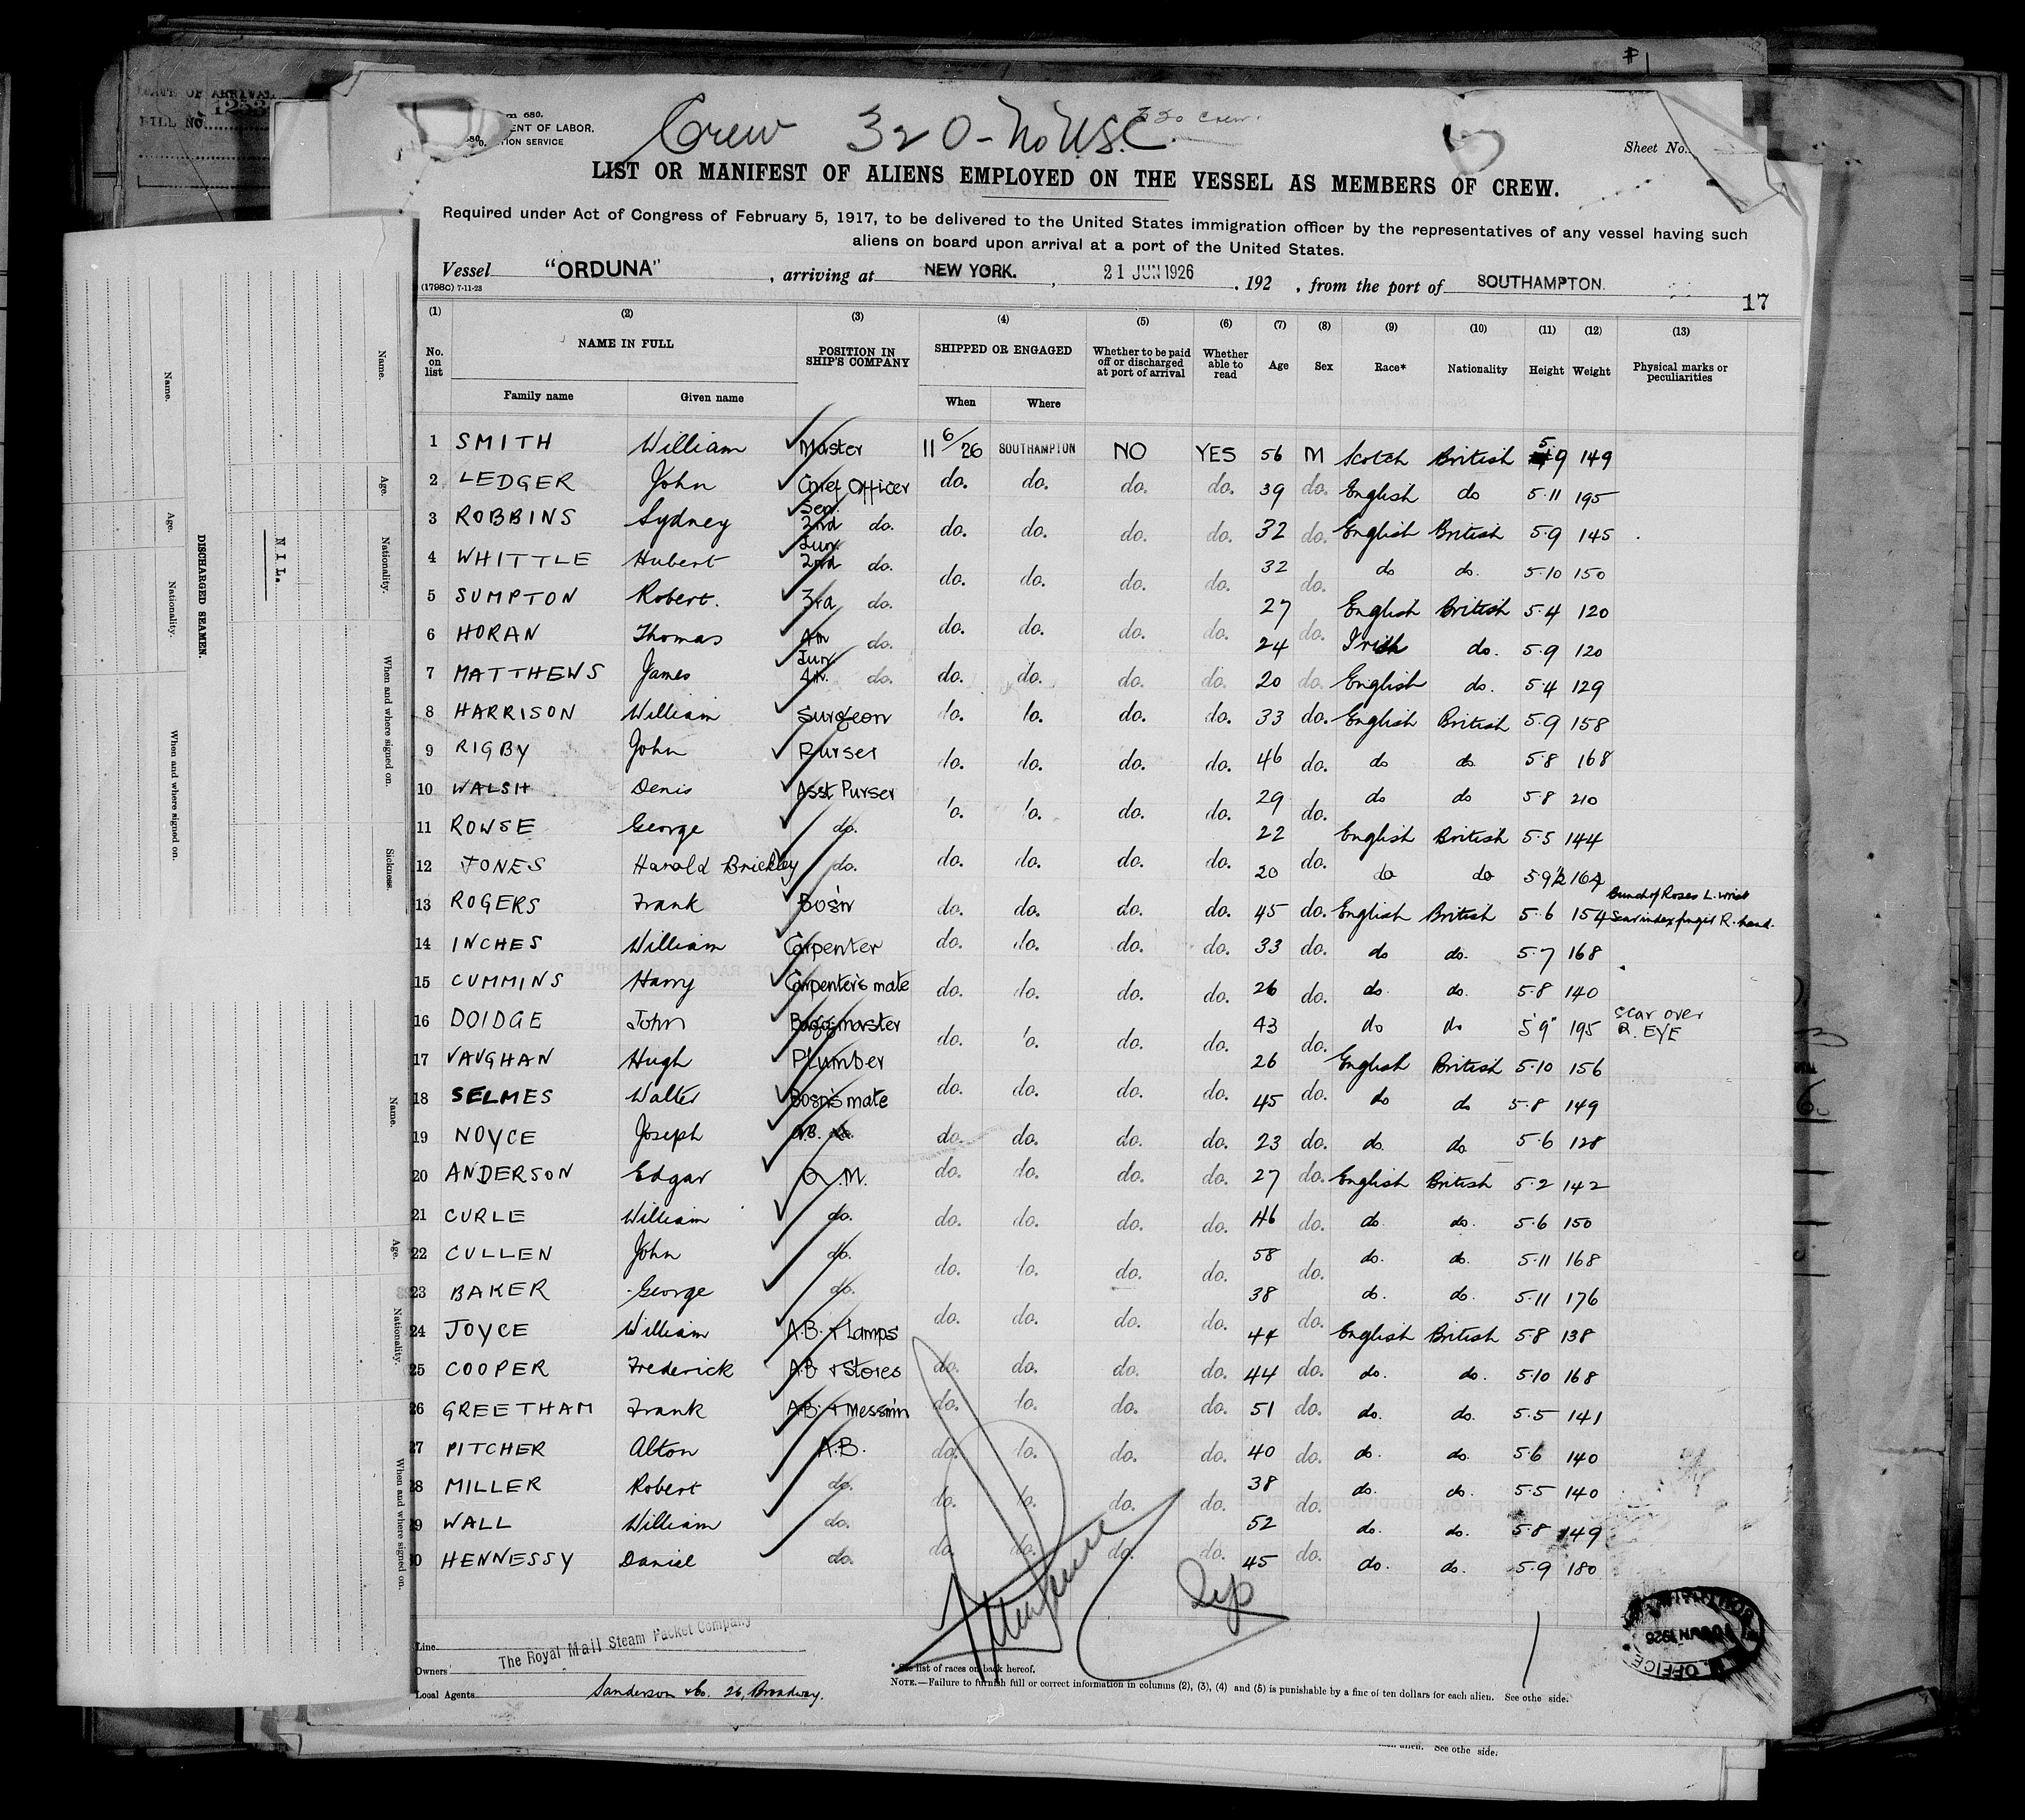 #1
DATE OF ARRIVAL
BILL NO.
680.
ENT OF LABOR.
TION SERVICE
Crew 320 - No U.S.C.
320 Crew.
Sheet No.
LIST OR MANIFEST OF ALIENS EMPLOYED ON THE VESSEL AS MEMBERS OF CREW.
Required under Act of Congress of February 5, 1917, to be delivered to the United States immigration officer by the representatives of any vessel having such
aliens on board upon arrival at a port of the United States.
Vessel "ORDUNA", arriving at NEW YORK., 21 JUN 1926, 192 , from the port of SOUTHAMPTON.
(1798C) 7-11-23
17
(1) (2) (3) (4) (5) (6) (7) (8) (9) (10) (11) (12) (13)
No. on list NAME IN FULL POSITION IN SHIP'S COMPANY SHIPPED OR ENGAGED Whether to be paid off or discharged at port of arrival Whether able to read Age Sex Race* Nationality Height Weight Physical marks or peculiarities
Family name Given name When Where
1 SMITH William Master 11 6/26 SOUTHAMPTON NO YES 56 M Scotch British 5 9 149
2 LEDGER John Chief Officer do. do. do. do. 39 do. English do 5.11 195
3 ROBBINS Sydney Sen. 2nd do. do. do. do. do. 32 do. English British 5.9 145
4 WHITTLE Hubert Jun. 2nd do. do. do. do. do. 32 do. do do. 5.10 150
5 SUMPTON Robert. 3rd do. do. do. do. do. 27 do. English British 5.4 120
6 HORAN Thomas 4th do. do. do. do. do. 24 do. Irish do. 5.9 120
7 MATTHEWS James Jun. 4th. do. do. do. do. do. 20 do. English do. 5.4 129
8 HARRISON William Surgeon do. do. do. do. 33 do. English British 5.9 158
9 RIGBY John Purser do. do. do. do. 46 do. do do 5.8 168
10 WALSH Denis Asst Purser do. do. do. do. 29 do. do do 5.8 210
11 ROWSE George do. do. do. do. do. 22 do. English British 5.5 144
12 JONES Harold Brickley do. do. do. do. do. 20 do do 5.9½ 164
13 ROGERS Frank Bos'n do. do. do. do. 45 do. English British 5.6 154 Bunch of Roses L. wrist Scar index finger R. hand.
14 INCHES William Carpenter do. do. do. do. 33 do. do do. 5.7 168
15 CUMMINS Harry Carpenter's mate do. do. do. do. 26 do. do. do. 5.8 140
16 DOIDGE John Baggmaster do. do. do. do. 43 do. do do 5'9" 195 Scar over R. EYE
17 VAUGHAN Hugh Plumber do. do. do. do. 26 English British 5.10 156
18 SELMES Walter Bosn's mate do. do. do. do. 45 do. do do 5.8 149
19 NOYCE Joseph do. do. do. do. 23 do. do. do. 5.6 128
20 ANDERSON Edgar Q.M. do. do. do. do. 27 do. English British 5.2 142
21 CURLE William do. do. do. do. do. 46 do. do. do. 5.6 150
22 CULLEN John do. do. do. do. do. 58 do. do. do. 5.11 168
23 BAKER George do. do. do. do. do. 38 do. do. do. 5.11 176
24 JOYCE William A.B. + Lamps 44 English British 5.8 138
25 COOPER Frederick A.B + Stores do. do. do. do. 44 do. do. do. 5.10 168
26 GREETHAM Frank A.B. + Messm'n do. do. do. do. 51 do. do. do. 5.5 141
27 PITCHER Alton A.B. do. do. do. do. 40 do. do. do. 5.6 140
28 MILLER Robert do. do. do. do. do. 38 do. do. do. 5.5 140
29 WALL William do. 52 do. do. 5.8 149
30 HENNESSY Daniel do. do. do. do. do. 45 do. do. do. 5.9 180
Line
Owners The Royal Mail Steam Packet Company
Local Agents Sanderson & Co. 26, Broadway.
* See list of races on back hereof.
NOTE.—Failure to furnish full or correct information in columns (2), (3), (4) and (5) is punishable by a fine of ten dollars for each alien. See othe side.
See othe side.
DISCHARGED SEAMEN.
NIL.
Name.
Age.
Nationality.
When and where signed on.
Sickness.
Name.
Age.
Nationality.
When and where signed on.
Name.
Age.
Nationality.
When and where signed on.